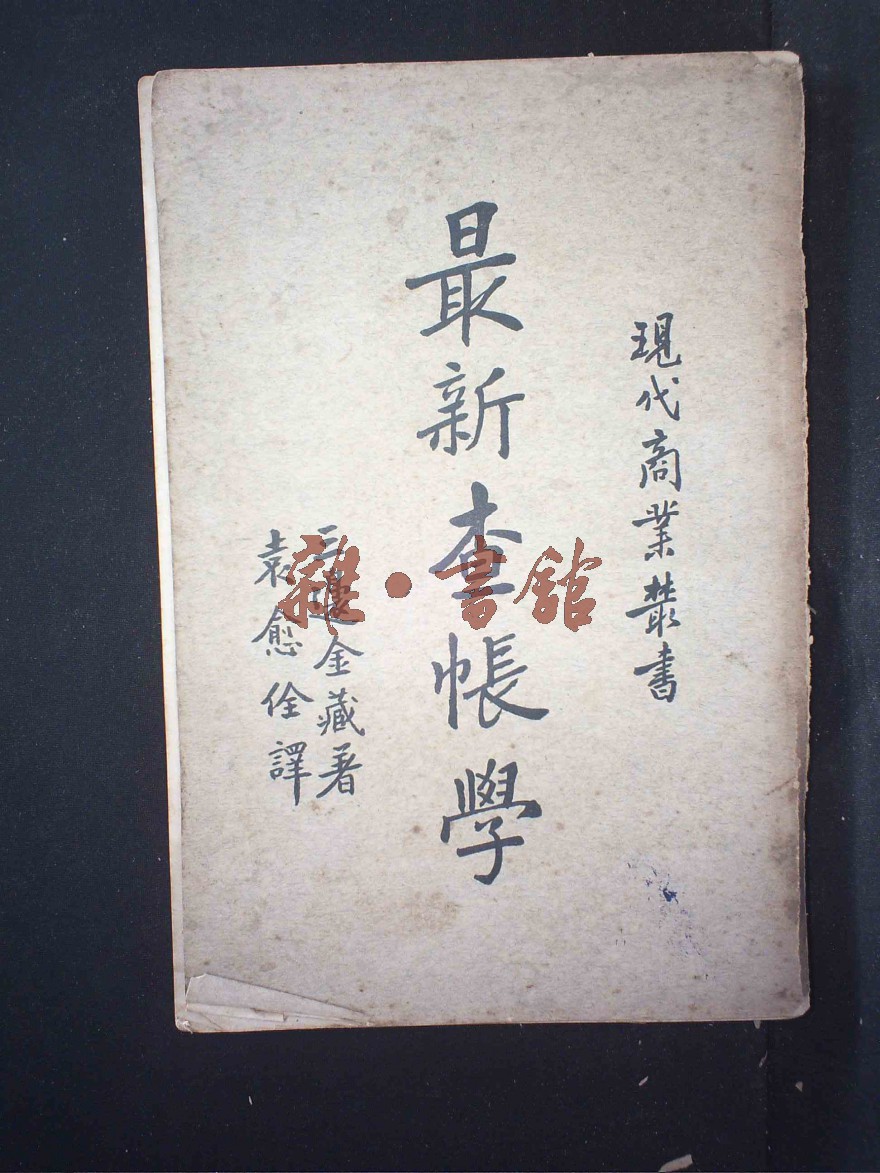 現代商業叢書
最新查帳學
三邊金藏著
袁愈佺譯
雜·書館